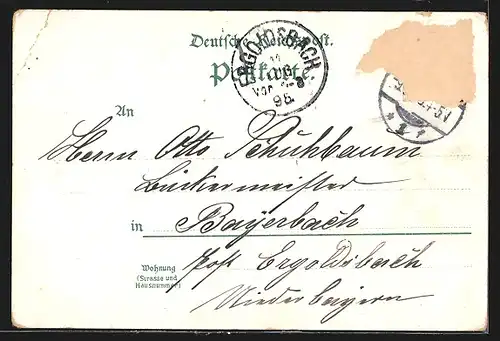 Deutsche Reichspost.
Postkarte.
ERGOLDSBACH
VOR
95.
An
Herrn Otto Schuhbaum
Bäckermeister
in Bayerbach
Post Ergoldsbach
Niederbayern
Wohnung
(Strasse und
Hausnummer)